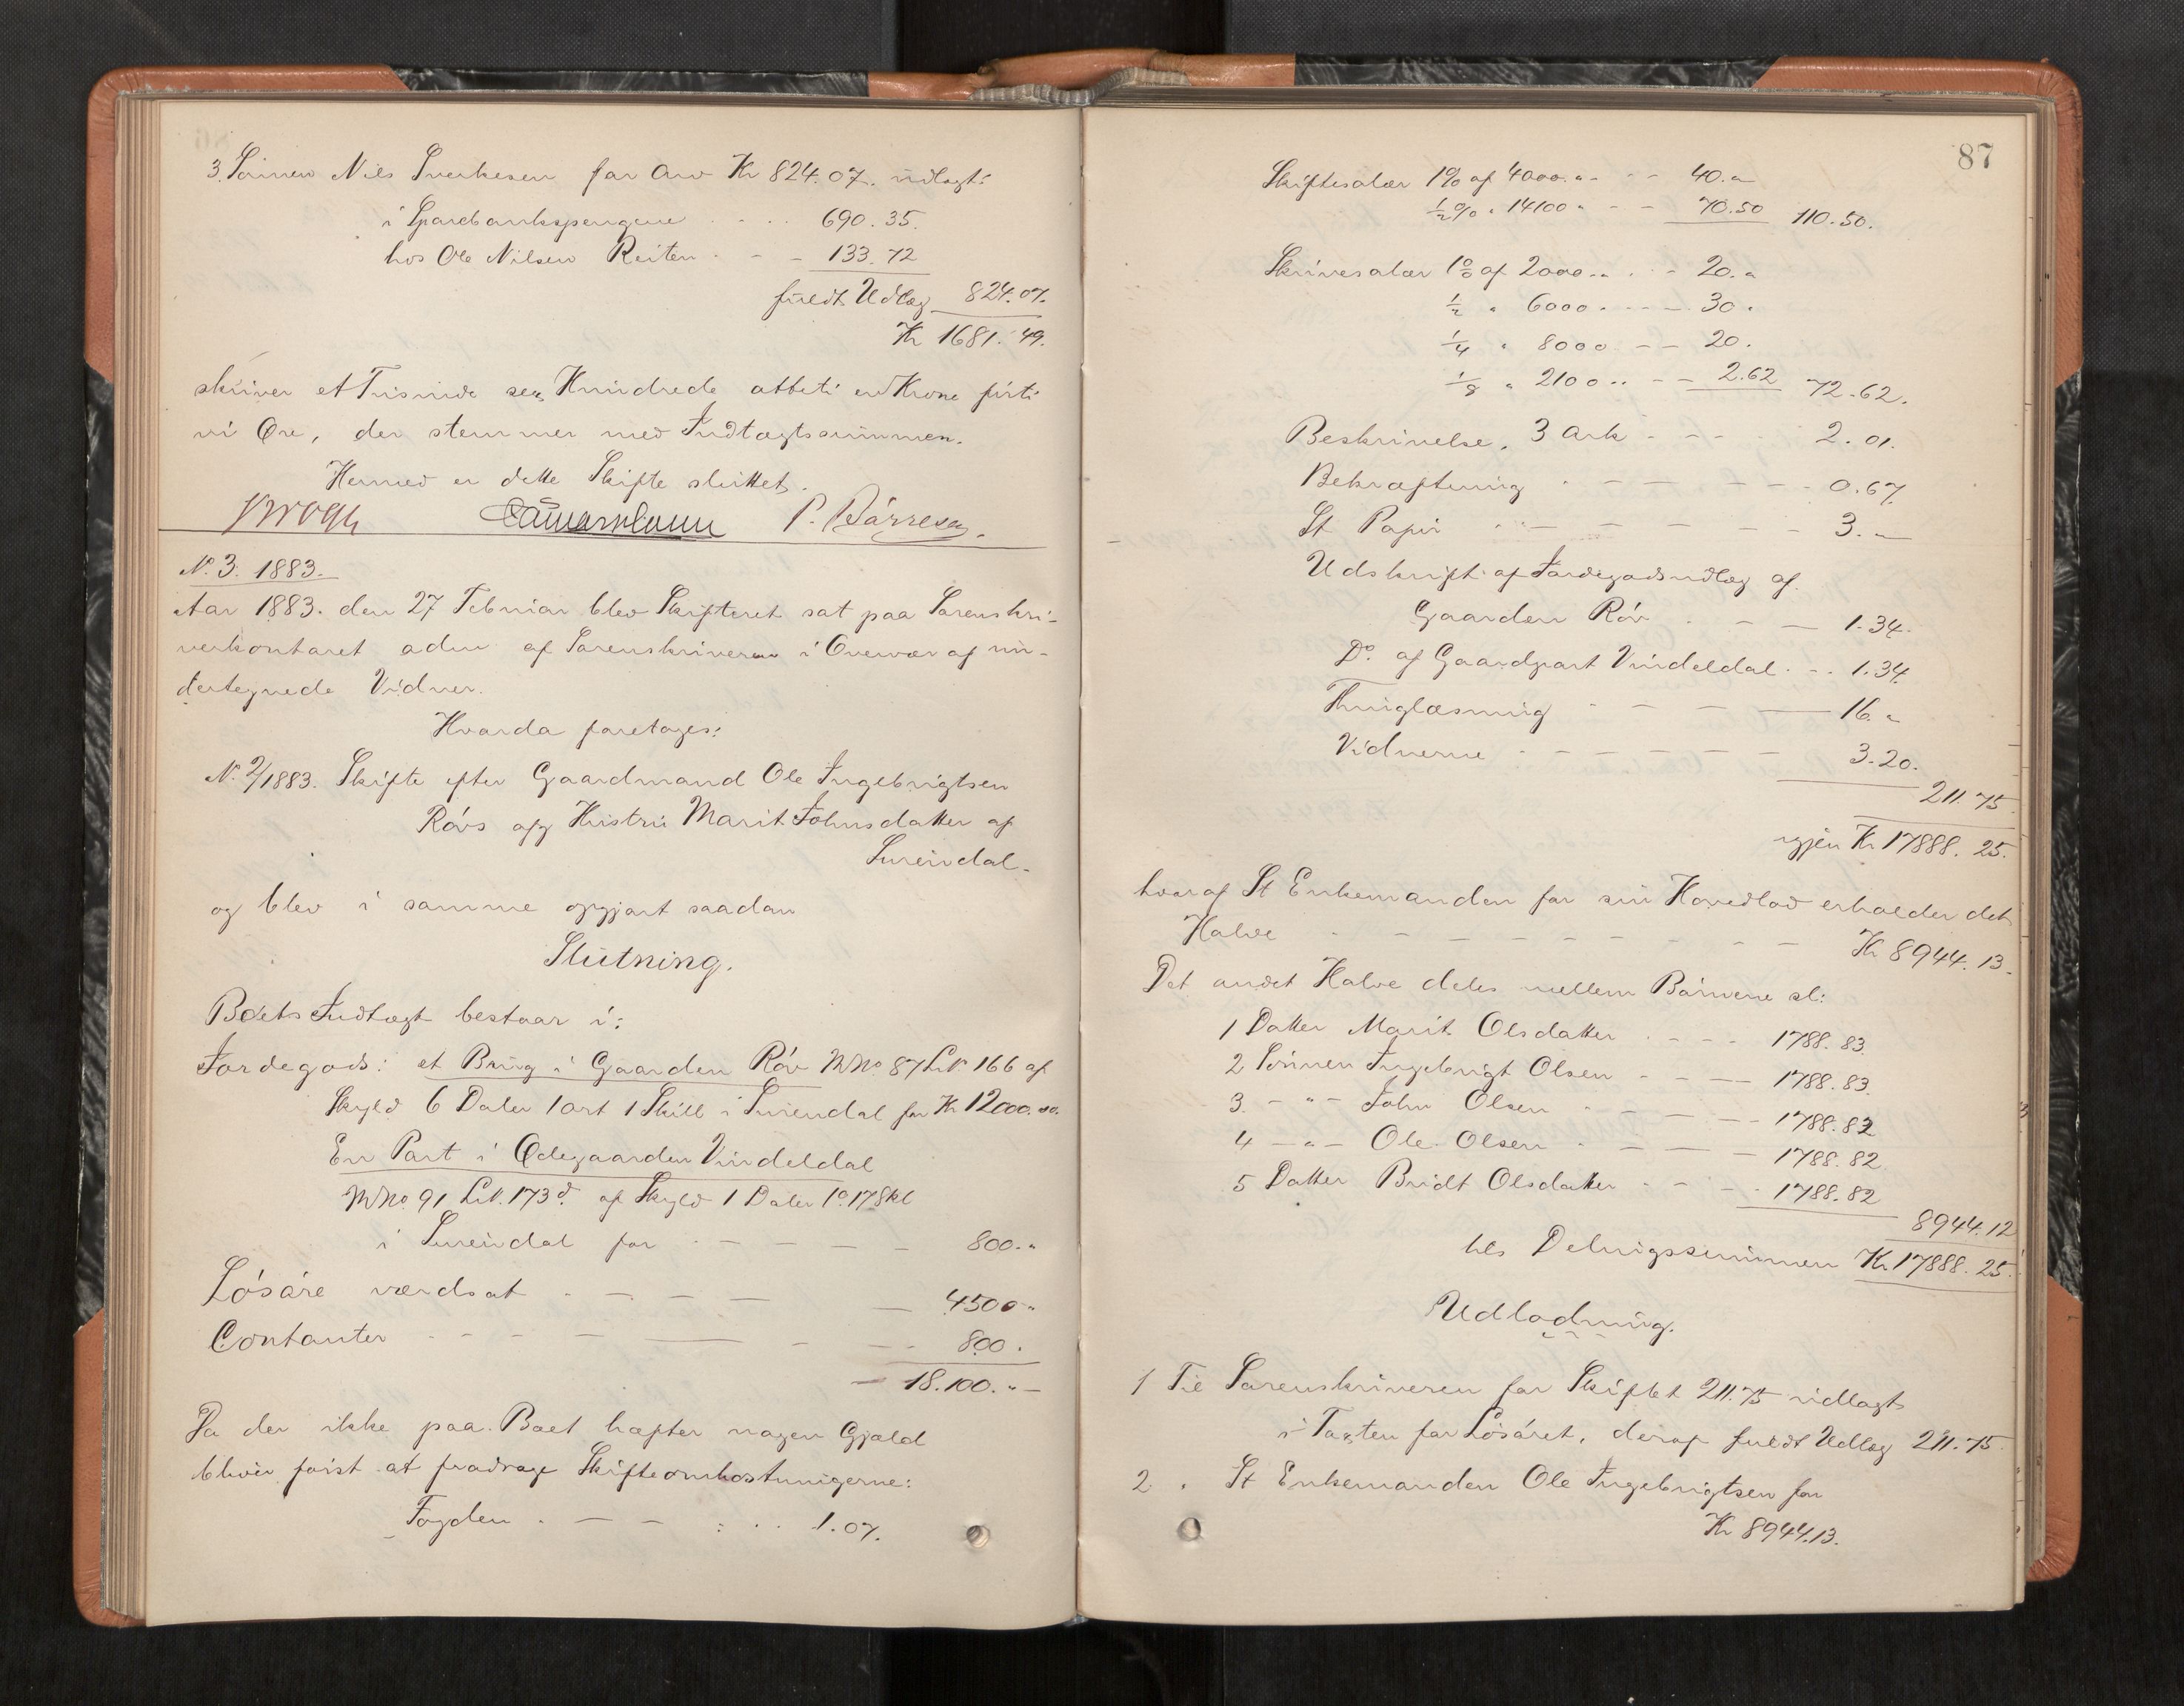 3. Sønnen Nils Sverkesen for Arv Kr 824.07. udlagt:
i Sparebankspengene 690.35.
hos Ole Nilsen Reiten 133.72
fuldt Udlæg 824.07.
Kr 1681.49.
skriver et Tusinde sex Hundrede otteti en Krone firti
ni Øre, der stemmer med Indtægtssummen.
Hermed er dette Skifte sluttet.
Krogh P. Børresen.
No. 3. 1883.
Aar 1883. den 27 Februar blev Skifteret sat paa Sorenskri-
verkontoret adm. af Sorenskriveren i Overvær af un-
dertegnede Vidner.
Hvorda foretoges:
No. 2/1883. Skifte efter Gaardmand Ole Ingebrigtsen
Røvs afg Hustru Marit Johnsdatter af
Surendal.
og blev i samme opgjort saadan
Slutning.
Boets Indtægt bestaar i:
Jordegods: et Brug i Gaarden Røv MNo 87 LN 166 af
Skyld 6 Daler 1 ort 1 Skill i Surendal for Kr 12000.00.
En Part i Ødegaarden Vindeldal
MNo. 91 LN. 173d. af Skyld 1 Daler 1o. 17 Skl
i Surendal for 800.„
Løsøre værdsat 4500„
Contanter 800.
18.100.„
Da der ikke paa Boet hæfter nogen Gjæld
bliver først at fradrage Skifteomkostningerne:
Fogden 1.07.
87
Skiftesalær 1% af 4000.„ 40.„
1/2% „ 14100„ 70.50 110.50.
Skrivesalær 1% af 2000.. 20.„
1/2 „ 6000 30.
1/4 „ 8000 20.
1/8 „ 2100.. 2.62 72.62.
Beskrivelse, 3 Ark 2.01.
Bekræftning 0.67
St Papir 3.„
Udskrift af Jordegodsudlæg af
Gaarden Røv 1.34.
Do. af Gaardpart Vindeldal 1.34.
Thinglæsning 16.„
Vidnerne 3.20.
211.75
igjen Kr 17888.25.
hvoraf St Enkemanden for sin Hovedlod erholder det
Halve Kr 8944.13.
Det andet Halve deles mellem Børnene sl:
1 Datter Marit Olsdatter 1788.83.
2 Sønnen Ingebrigt Olsen 1788.83.
3. -„- John Olsen 1788.82
4 -„- Ole Olsen 1788.82
5 Datter Bridt Olsdatter 1788.82
8944.12
tils Delingssummen Kr 17888.25.
Udlodning.
1 Til Sorenskriveren for Skiftet 211.75 udlagt
i Taxten for Løsøret, deraf fuldt Udlæg 211.75.
2. St Enkemanden Ole Ingebrigtsen for
Kr 8944.13.